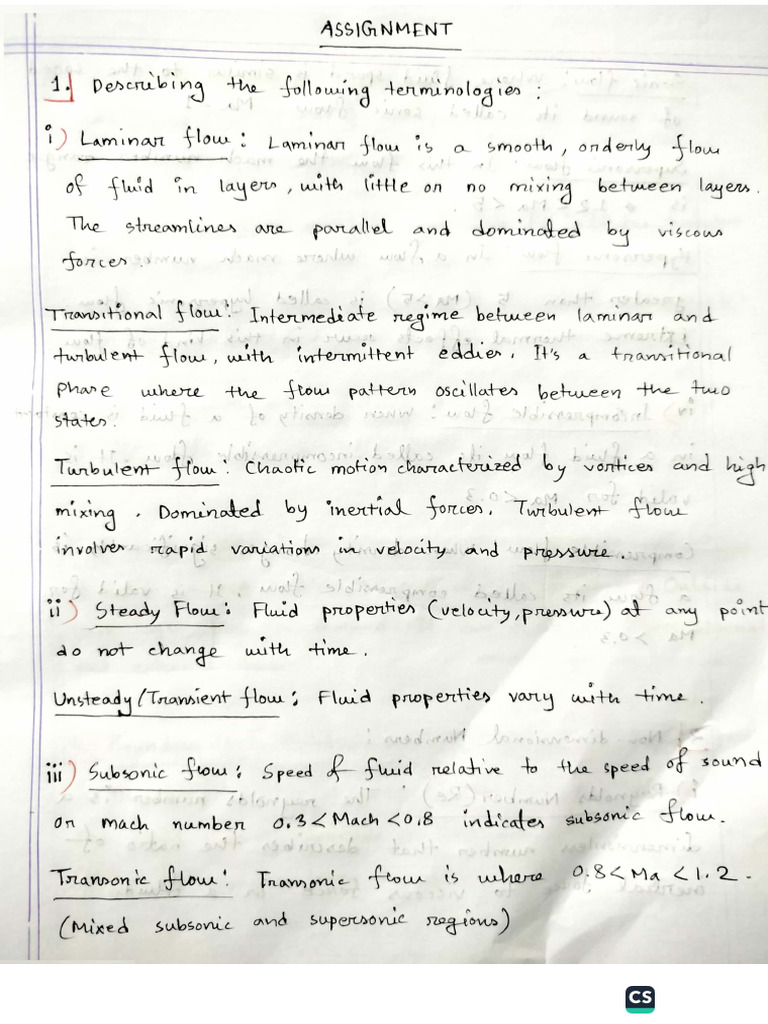 ASSIGNMENT
1. Describing the following terminologies :
i) Laminar flow : Laminar flow is a smooth, orderly flow
of fluid in layers, with little or no mixing between layers.
The streamlines are parallel and dominated by viscous
forces.
Transitional flow : Intermediate regime between laminar and
turbulent flow, with intermittent eddies. It's a transitional
phase where the flow pattern oscillates between the two
states.
Turbulent flow : Chaotic motion characterized by vortices and high
mixing. Dominated by inertial forces. Turbulent flow
involves rapid variations in velocity and pressure.
ii) Steady Flow : Fluid properties (velocity, pressure) at any point
do not change with time.
Unsteady/Transient flow : Fluid properties vary with time.
iii) Subsonic flow : Speed of fluid relative to the speed of sound
or mach number 0.3 < Mach < 0.8 indicates subsonic flow.
Transonic flow : Transonic flow is where 0.8 < Ma < 1.2.
(Mixed subsonic and supersonic regions)
CS